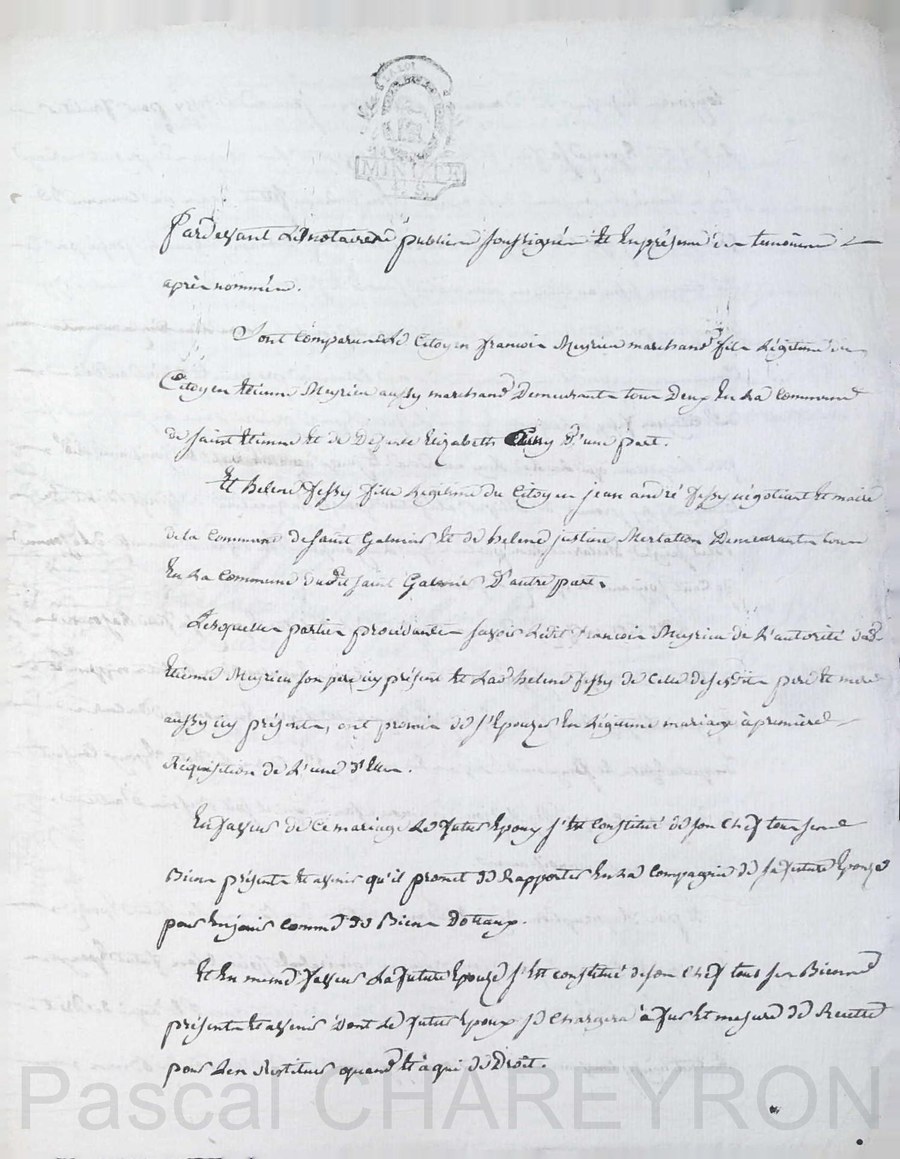 LA LOI
MINUTE
Pardevant Le Notaire public soussigné Et En présence des temoins
après nommés.
Sont comparus Le Citoyen françois Meyrieu marchand fils Légitime du
Citoyen Etienne Meyrieu aussy marchand Demeurants tous Deux En La Commune
de saint Etienne Et de Défunte Elizabeth D'une part.
Et helene fessy fille Légitime du Citoyen jean andré fessy négotiant Et maire
de la Commune de saint Galmier Et de helene justine Merlation Demeurants tous
En La Commune dudit saint Galmier D'autre part.
Lesquelles parties procédantes savoir Ledit françois Meyrieu de L'autorité dud.
Etienne Meyrieu son père icy présent Et Lad. helene fessy de Celle desesdits père Et mere
aussy icy présents, ont promis de s'Epouzer En Légitime mariage à première
Réquisition de L'une d'Elles.
En faveur de Ce mariage Le futur Epoux s'Est Constitué de son Chef tous ses
Biens présents Et avenir qu'il promet de Rapporter En La Compagnie de sa future Epouze
pour En jouir Comme de Biens Dotaux.
Et En meme faveur La future Epouze s'Est constitué de son Chef tous ses Biens
présents Et avenir Dont Le futur Epoux se Chargera à fur Et mesure de Recette
pour Les Restituer quand Et à qui de Droit.
Pascal CHAREYRON